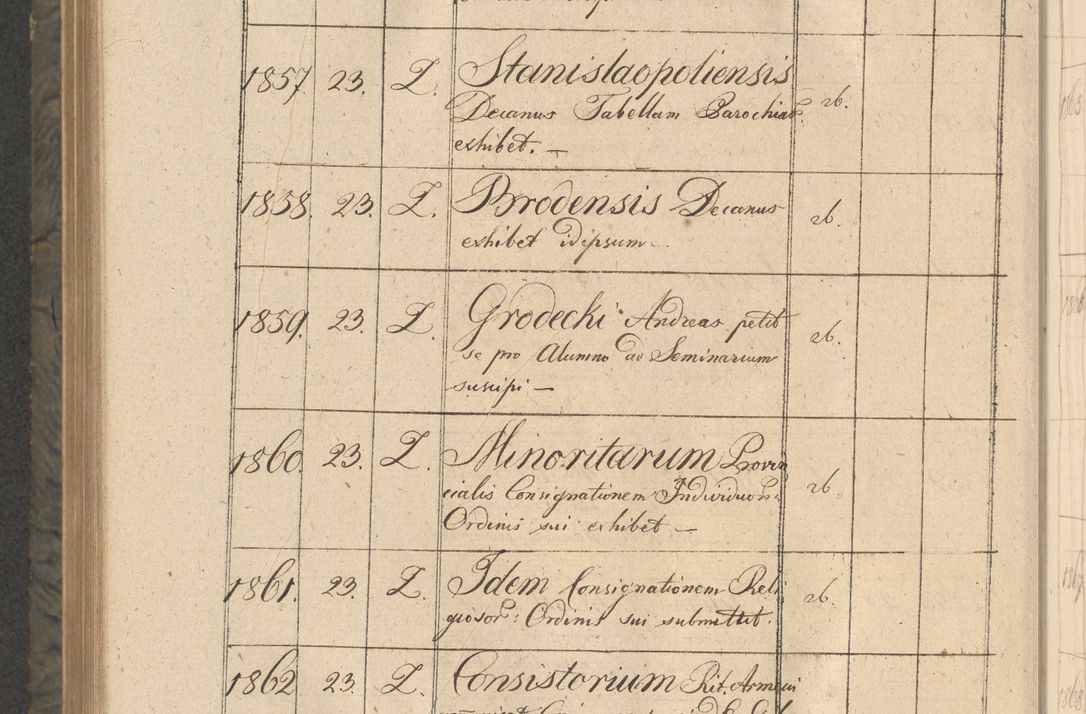 1857. 23. L. Stanislaopoliensis 26.
Decanus Tabellam Parochiar:
exhibet. —
1858. 23. L. Brodensis Decanus 26.
exhibet idipsum —
1859. 23. L. Grodecki Andreas petit 26.
se pro Alumno ad Seminarium
suscipi —
1860. 23. L. Minoritarum Provin 26.
cialis Consignationem Individuor:
Ordinis sui exhibet —
1861. 23. L. Idem Consignationem Reli 26.
giosor: Ordinis sui submittit.
1862 23. L. Consistorium Rit. Armeni